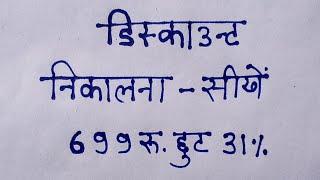 डिस्काउन्ट
निकालना - सीखें
699 रू. छुट 31%.